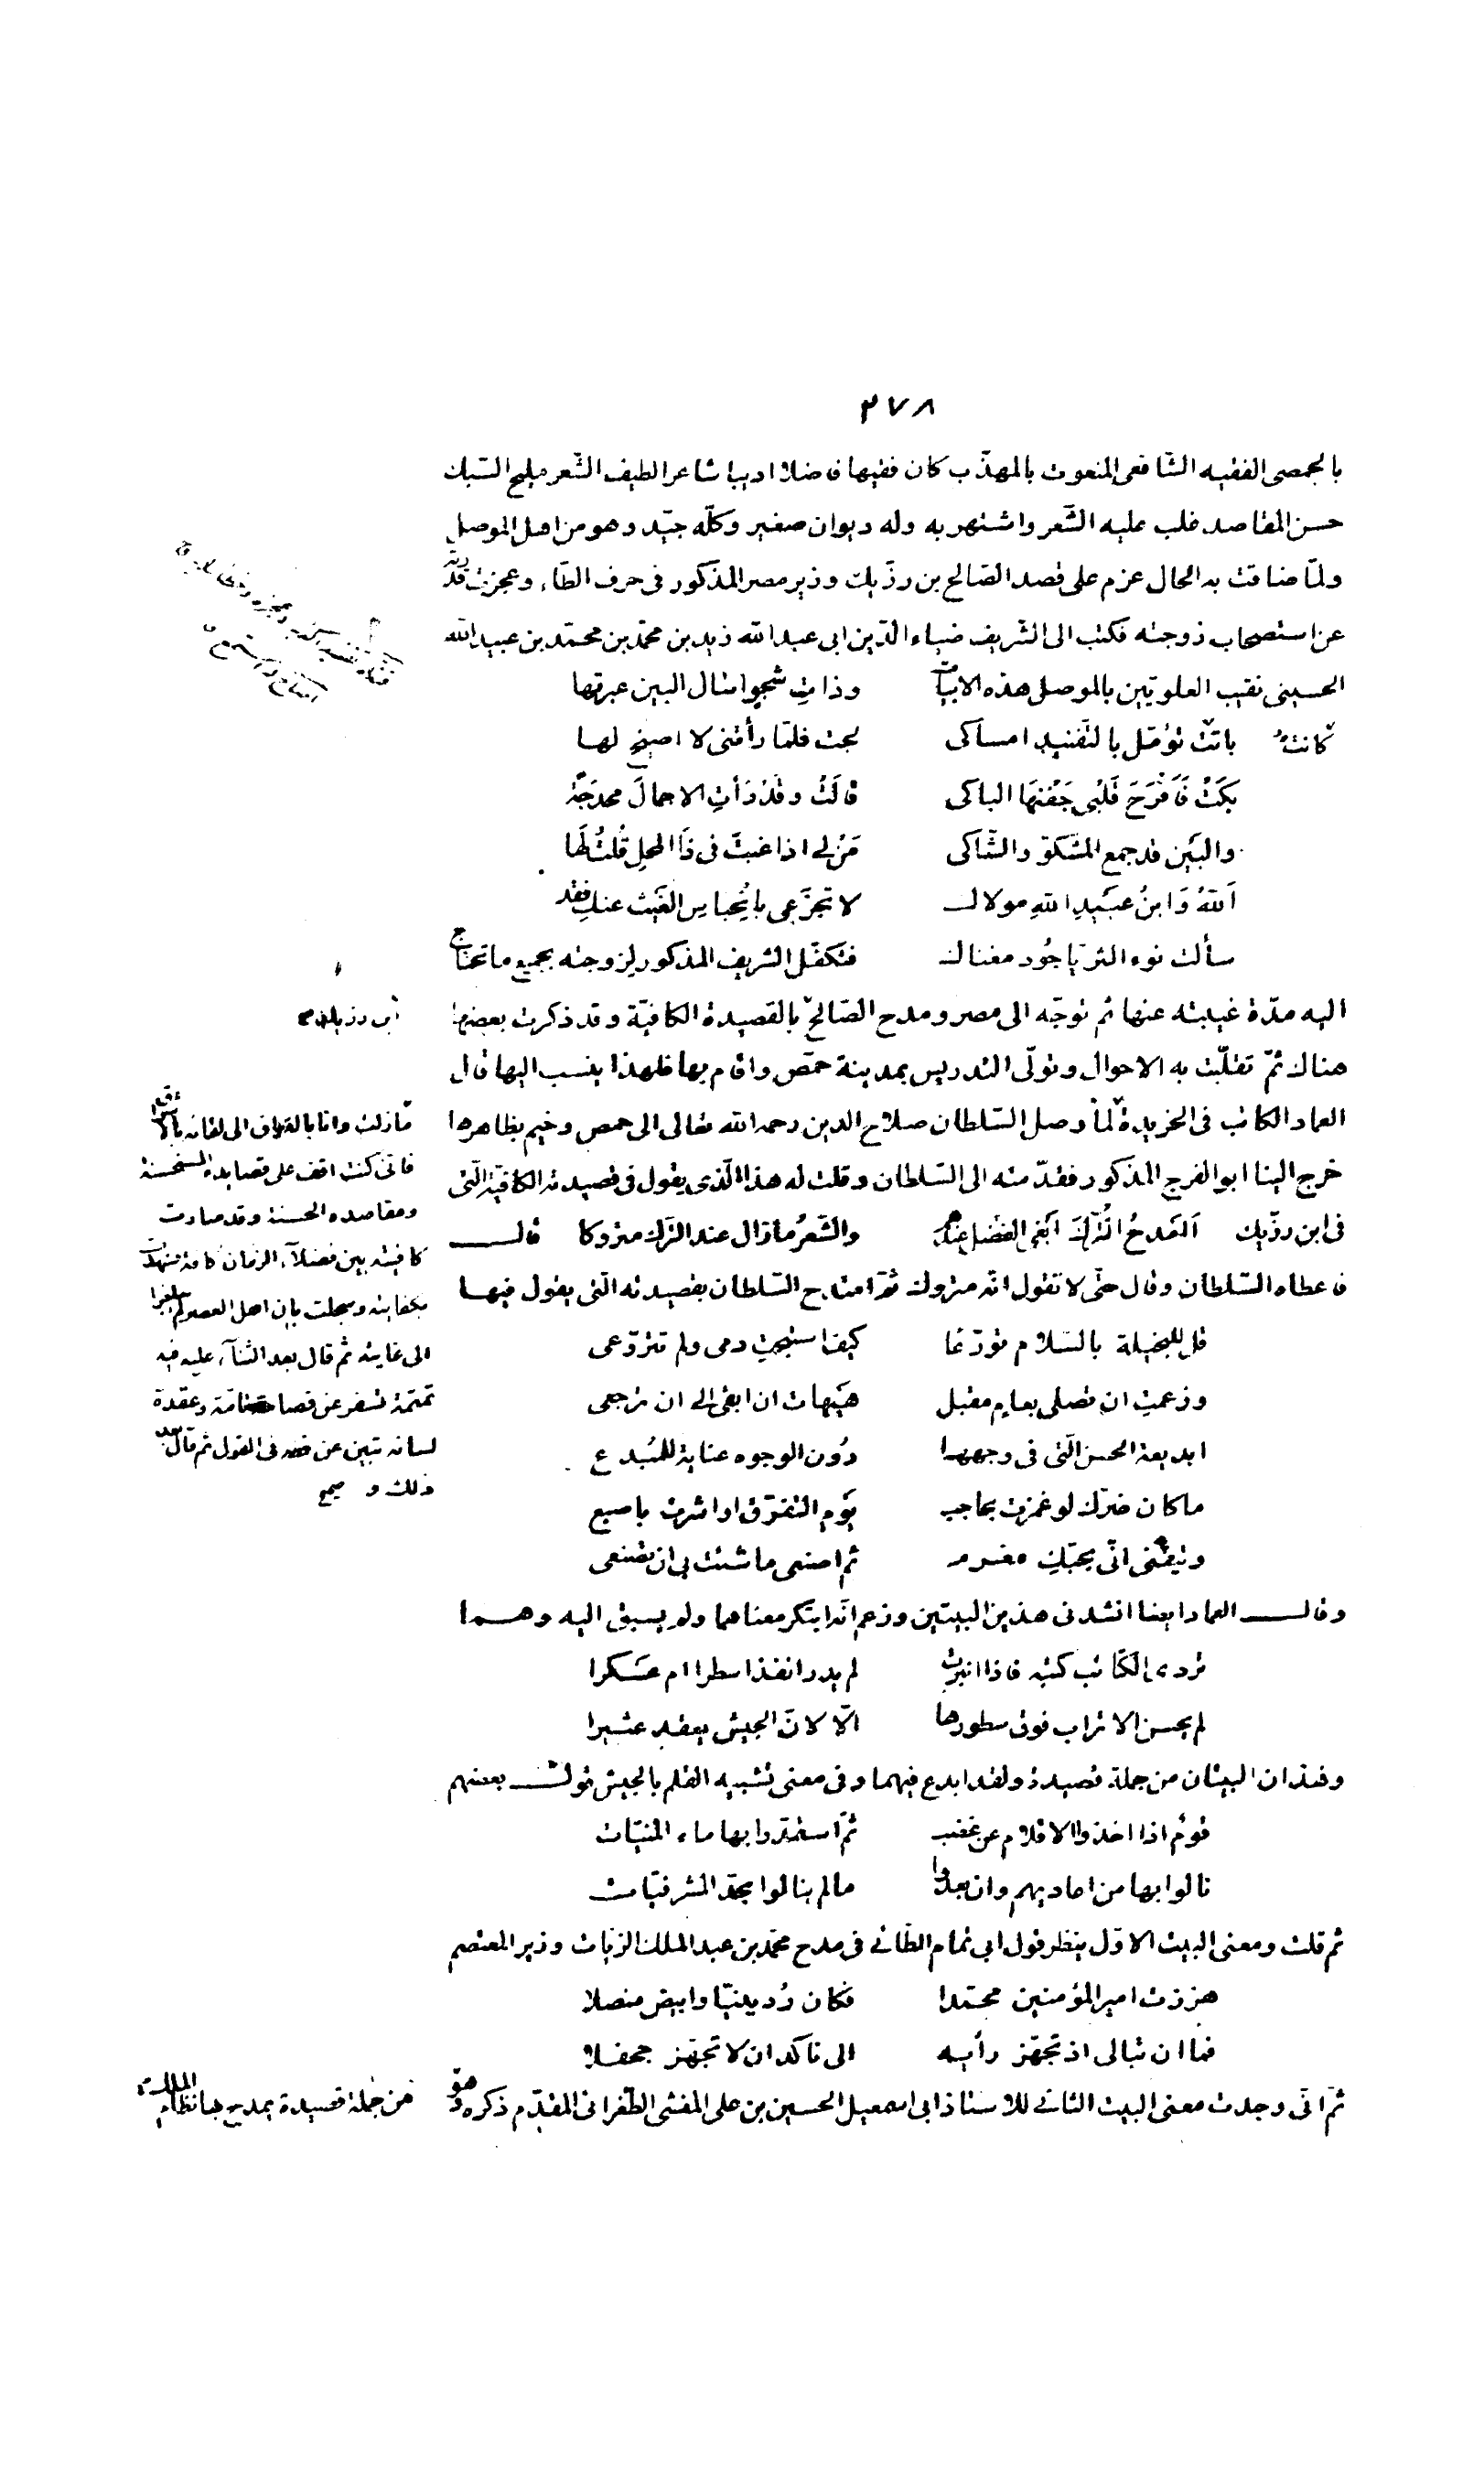 ٣٧٨
بالحمصى الفقيه الشّافعى المنعوت بالمهذّب كان فقيها فاضلا اديبا شاعرا لطيف الشّعر مليح السّبك
حسن المقاصد غلب عليه الشّعر واشتهر به وله ديوان صغير وكلّه جيّد وهو من اهل الموصل
ولمّا ضاقت به الحال عزم على قصد الصّالح بن رزّيك وزير مصر المذكور فى حرف الطّاء وعجزت قدرته
عن استصحاب زوجته فكتب الى الشّريف ضياء الدّين ابى عبد الله زيد بن محمّد بن محمّد بن عبيد الله
الحسينى نقيب العلويّين بالموصل هذه الابيات وذاتِ شجوٍ اسال البين عبرتها
كانت باتت تؤمّل بالتّفنيد امساكى لجت فلمّا رأتنى لا اصيخ لها
بَكَتْ فَاَقْرَحَ قَلْبى جَفْنهَا الباكى قالَتْ وقَدْ رَأتِ الاجمالَ محدجَةً
والبَين قد جمع المشكوّ والشّاكى مَنْ لى اذا غبتَ فى ذَا المحلِ قُلتُ لَهَا
اَللهُ وَابنُ عبَيدِ اللهِ مولاك لا تجزَعى بانْحباسِ الغَيث عنكِ فقد
سألت نوء الثريّا جُود مغناك فتكفّل الشريف المذكور لزوجته بجميع ما تحتاج
اليه مدّة غيبته عنها ثم توجّه الى مصر ومدح الصّالح بالقصيدة الكافيّة وقد ذكرت بعضها
ابن رزيك
هناك ثمّ تقلّبت به الاحوال وتولّى التدريس بمدينة حمص واقام بها فلهذا ينسب اليها قال
العماد الكاتب فى الخريدة لمّا وصل السّلطان صلاح الدين رحمه الله تعالى الى حمص وخيم بظاهرها
خرج الينا ابو الفرج المذكور فقدّمته الى السّلطان وقلت له هذا الّذى يقول فى قصيدته الكافيّة الّتى
فى ابن رزّيك اَاَمدحُ التُّركَ اَبغى الفضل عندهم والشّعرُ مازال عند التّرك متروكا قال
فاعطاه السّلطان وقال حتّى لا تقول انّه متروك ثمّ امتدح السّلطان بقصيدته الّتى يقول فيها
قل للبخيلة بالسّلام تورّعا كيف استبحت دمى ولم تتورّعى
وزعمتِ ان تصلى بعامٍ مقبل هَيهات ان ابقى الى ان ترجعى
ابديعة الحسن الّتى فى وجهها دُون الوجوه عناية للمُبدع
ما كان ضرّك لو غمزت بحاجب يَوم التفرّق او اشرت باصبع
وتيقّنى انّى بحبّكِ مغرم ثم اصنعى ما شئت بى ان تصنعى
وقال العماد ايضا انشدنى هذين البيتين وزعم انّه ابتكر معناهما ولم يسبق اليه وهما
تردى الكتائب كتبه فاذا انبرت لم يدر انفذ اسطرا ام عسكرا
لم يحسن الاتراب فوق سطورها الّا لانّ الجيش يعقد عثيرا
وهذان البيتان من جملة قصيدة ولقد ابدع فيهما وفى معنى تشبيه القلم بالجيش قول بعضهم
قومٌ اذا اخذوا الاقلام عن غضب ثمّ استمدّوا بها ماء المنيّات
نالوا بها من اعاديهم وان بعدوا مالم ينالوا بحدّ المشرفيّات
ثم قلت ومعنى البيت الاوّل ينظر قول ابى تمام الطّائى فى مدح محمّد بن عبد الملك الزيات وزير المعتصم
هززت امير المؤمنين محمّدا فكان رُدينيّا وابيض منصلا
فما ان تبالى اذ تجهّز رأيه الى ناكد ان لا تجهّز جحفلا
ثمّ انّى وجدت معنى البيت الثانى للاستاذ ابى اسمعيل الحسين بن على المنشى الطّغرائى المقدّم ذكره وهو من جملة قصيدة يمدح بها نظام الملك
ما زلت وانا بالعراق الى لقائه بالاشواق
فانى كنت اقف على قصايده المستحسنة
ومقاصده الحسنة وقد سارت
كافيته بين فضلاء الزمان كافة فشهدت
بكفايته وسجلت بان اهل العصر لم يبلغوا
الى غايته ثم قال بعد الثناء عليه فيه
تمتمة تسفر عن فصاحة تامّة وعقدة
لسانه تبين عن فقه فى القول ثم قال بعد
ذلك و صح